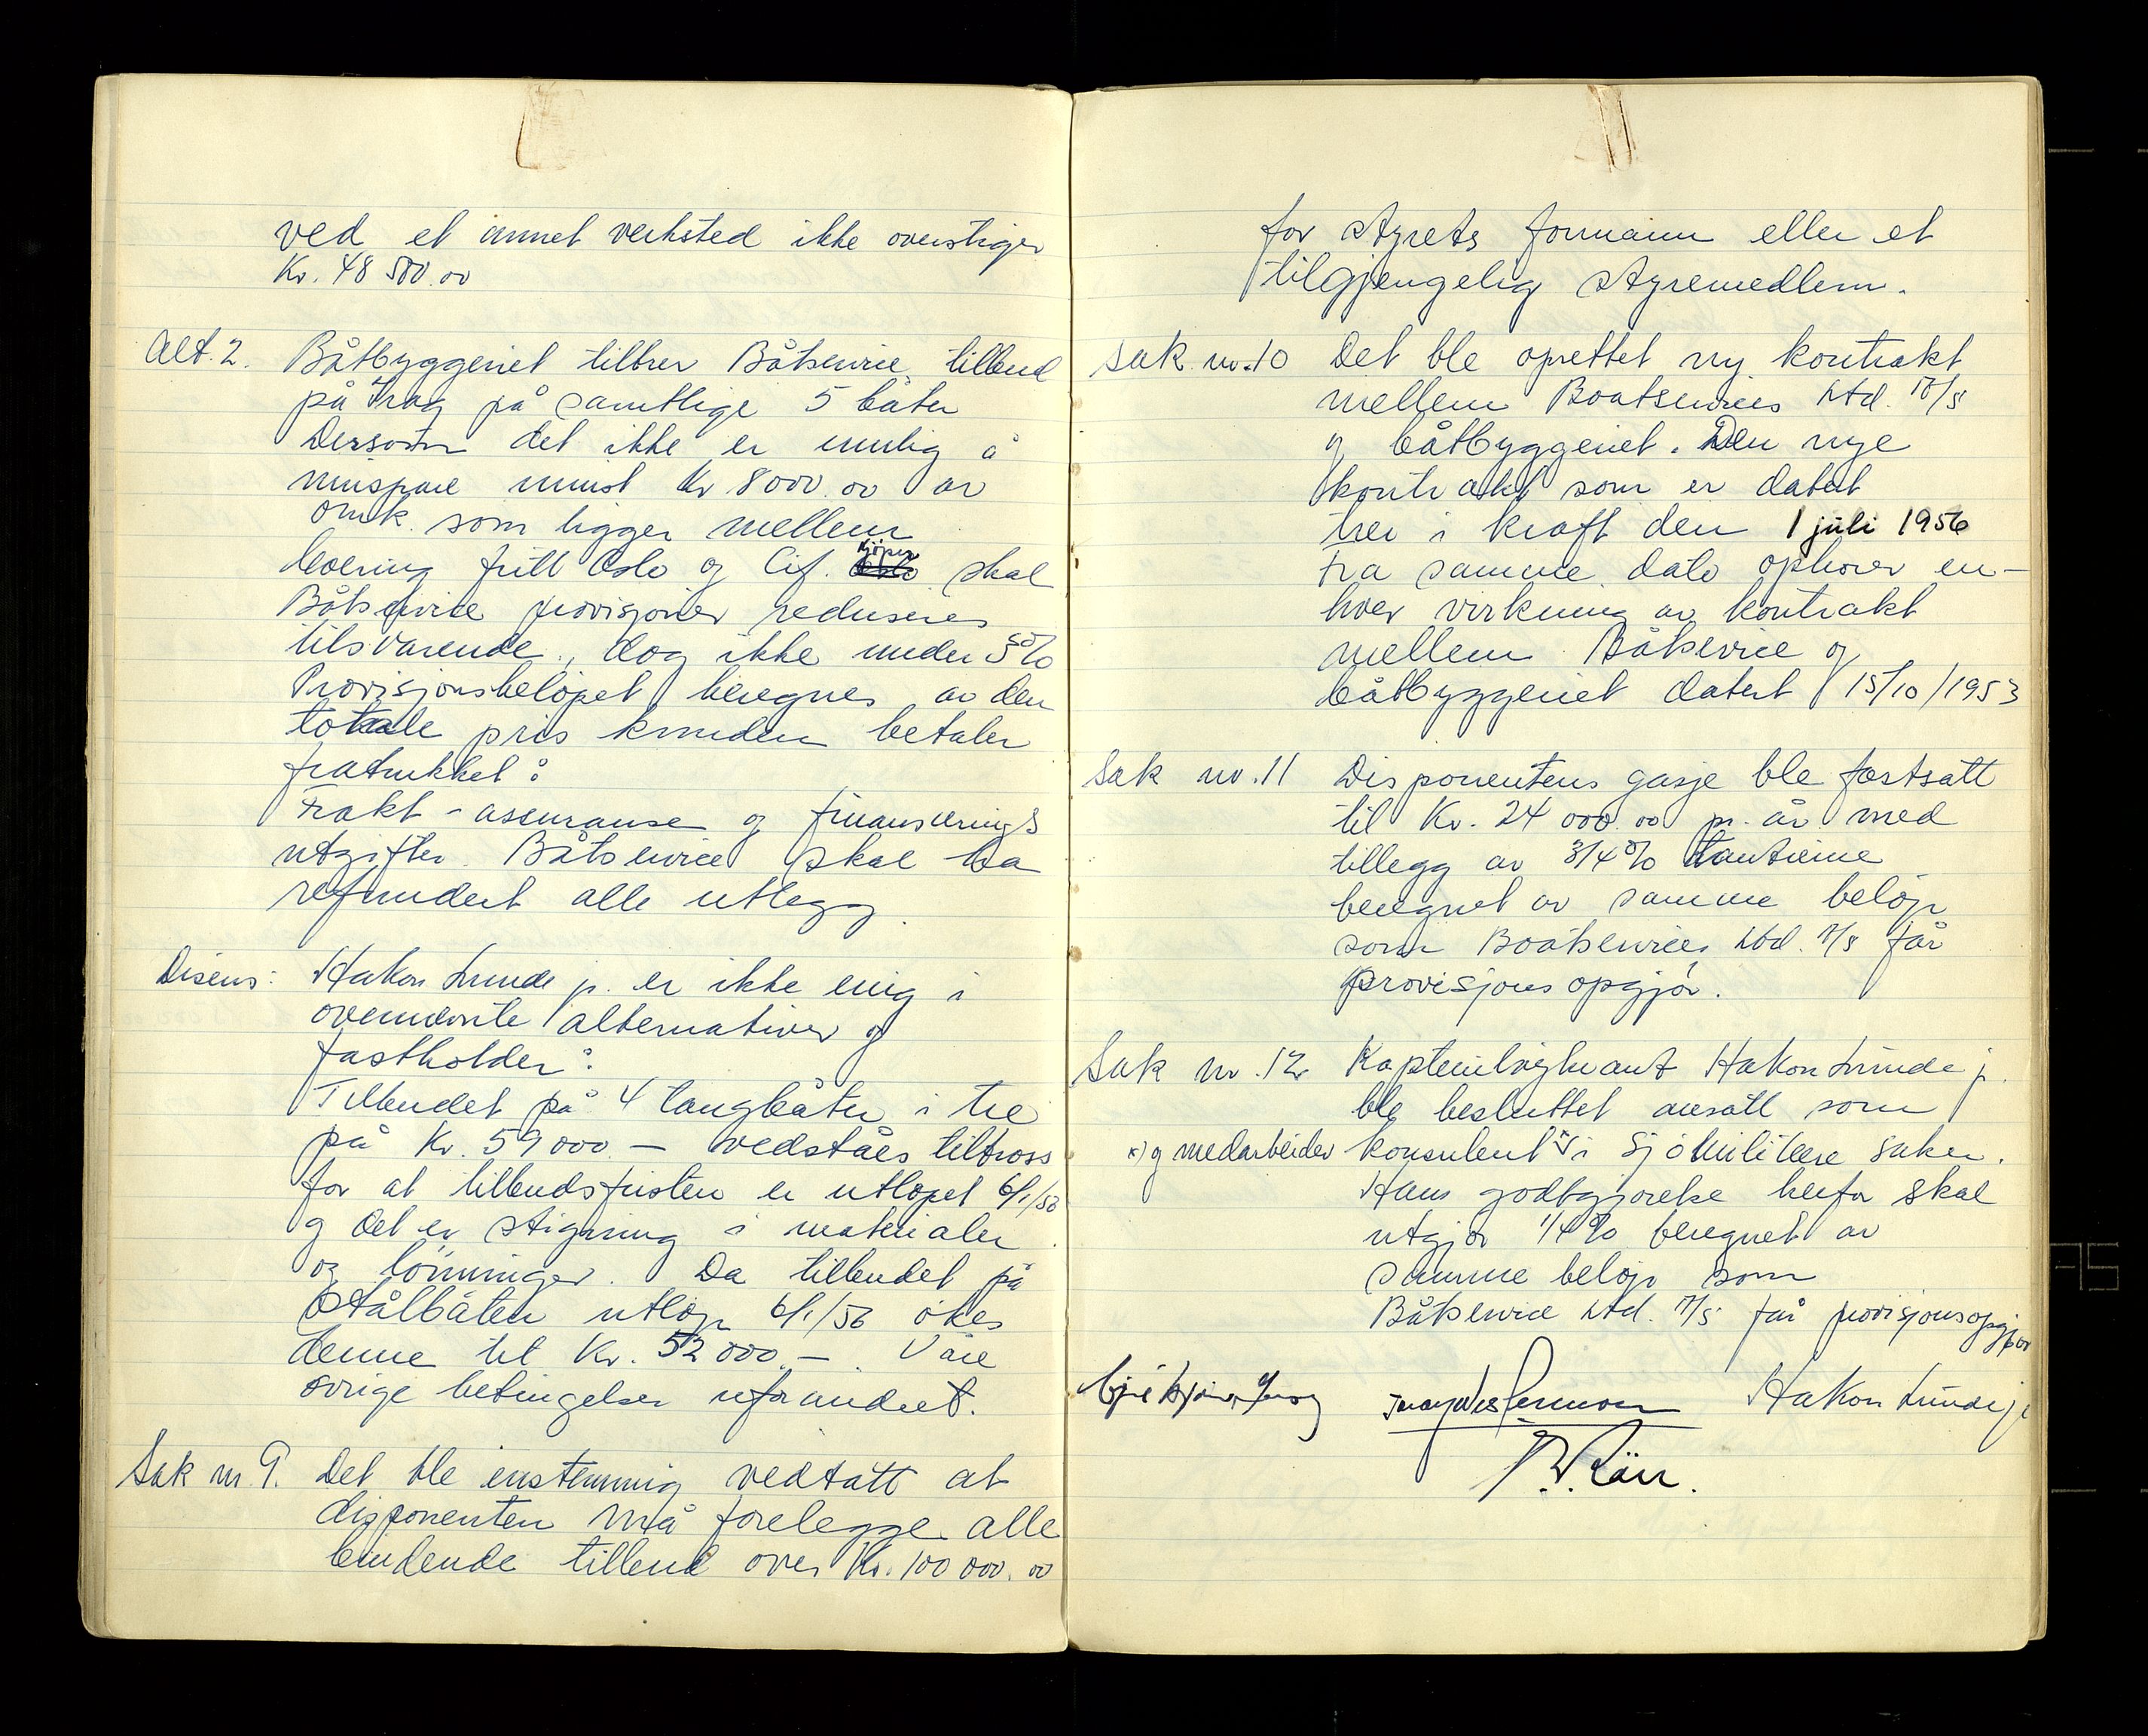 ved et annet verksted ikke overstiger
Kr. 48 500.00
Alt. 2. Båtbyggeriet tiltrer Båtservice tilbud
på frag på samtlige 5 båter
Dersom det ikke er mulig å
innspare minst Kr. 8000.00 av
omk. som ligger mellem
levering fritt Oslo og Cif. kjöper skal
Båtservice provisjoner reduseres
tilsvarende, dog ikke under 5%
Provisjonsbelöpet beregnes av den
totale pris kunden betaler
fratrukket:
Frakt - assuranse og finansierings
utgifter. Båtservice skal ha
refundert alle utlegg.
Disens: Hakon Lunde jr. er ikke enig i
ovennevnte alternativer og
fastholder:
Tilbudet på 4 langbåter i tre
på Kr. 59 000 – vedståes tiltross
for at tilbudsfristen er utlöpet 6/1/56
og det er stigning i materialer
og lönninger. Da tilbudet på
Stålbåten utlöp 6/1/56 ökes
denne til Kr. 52 000 –. Våre
övrige betingelser uforandret.
Sak nr. 9. Det ble enstemmig vedtatt at
disponenten må forelegge alle
bindende tilbud over Kr. 100 000.00
for styrets formann eller et
tilgjengelig styremedlem.
Sak nr. 10 Det ble oprettet ny kontrakt
mellem Boatservices Ltd. A/S
og båtbyggeriet. Den nye
kontrakt som er datert
trer i kraft den 1 juli 1956
Fra samme dato ophörer en-
hver virkning av kontrakt
mellem Båtservice og
båtbyggeriet datert 15/10/1953
Sak nr. 11 Disponentens gasje ble fastsatt
til Kr. 24 000.00 pr. år med
tillegg av 3/4% tantieme
beregnet av samme belöp
som Boatservices Ltd. A/S får
provisjonsopgjör.
Sak nr. 12 Kapteinlöytnant Hakon Lunde jr.
ble besluttet ansatt som
x) og medarbeider konsulent x) i Sjömilitære saker.
Hans godtgjörelse herfor skal
utgjör 1/4% beregnet av
samme belöp som
Båtservice Ltd. A/S får provisjonsopgjör
Hakon Lunde jr